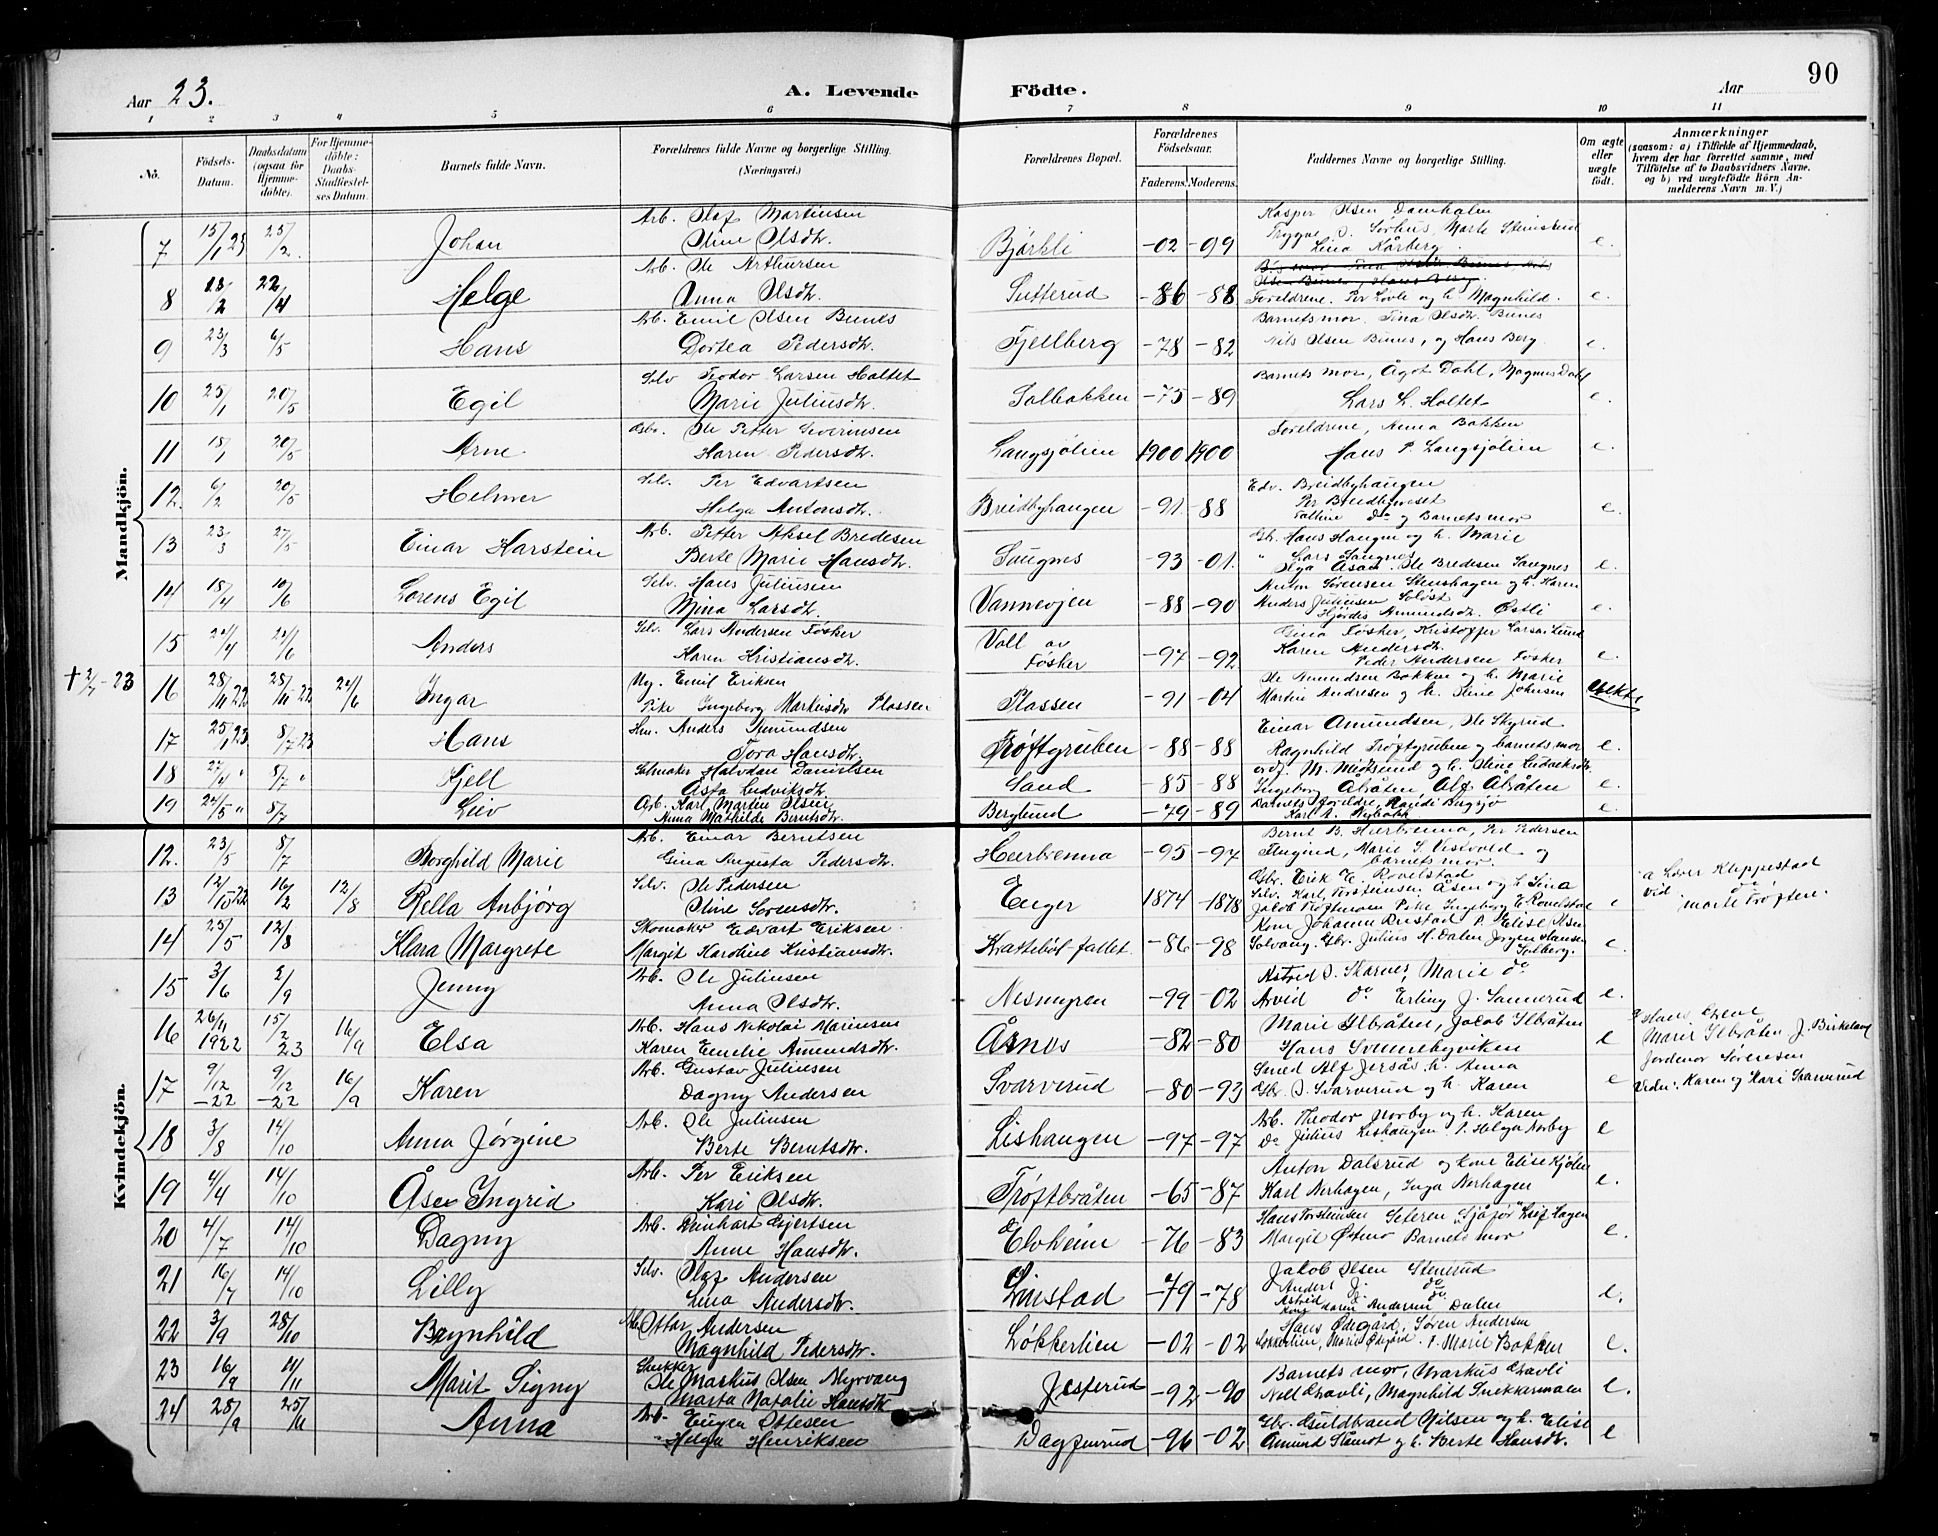 Aar 23. A. Levende Födte. Aar 90
1 2 3 4 5 6 7 8 9 10 11
No. Födsels-Datum. Daabsdatum (ogsaa for Hjemmedöbte). For Hjemmedöbte: Daabs-Stadfæstelses Datum. Barnets fulde Navn. Forældrenes fulde Navne og borgerlige Stilling. (Næringsvei.) Forældrenes Bopæl. Forældrenes Födselsaar. Faderens. Moderens. Faddernes Navne og borgerlige Stilling. Om ægte eller uægte födt. Anmærkninger (saasom: a) i Tilfælde af Hjemmedaab, hvem der har forrettet samme, med Tilföielse af to Daabsvidners Navne. og b) ved uægtefödte Börn Anmelderens Navn m. V.)
Mandkjön.
7 15/1 23 25/2. Johan Arb. Olaf Martinsen Oline Olsdtr. Bjørkli -02 -99 Kasper Olsen Damholm Trygve O. Sørhus, Marte Stensrud Lina Kårberg. e.
8 13/2 22/4 Helge Arb. Ole Arthursen Anna Olsdtr. Sutterud -86 -88 Foreldrene. Per Lovle og h. Magnhild. e.
9 23/3 6/5 Hans Arb. Emil Olsen Bunes Dortea Pedersdtr. Fjellberg -78 -82 Barnets mor. Tina Olsdtr. Bunes Nils Olsen Bunes, og Hans Berg. e.
10 25/1 20/5 Egil Selv. Teodor Larsen Holtet Marie Juliusdtr. Solbakken -75 -89 Barnets mor, Ågot Dahl, Magnus Dahl Lars L. Holtet e.
11 18/1 20/5 Arne Arb. Ole Petter Severinsen Karen Pedersdtr. Langsjølien 1900 1900 Foreldrene, Anna Bakken Hans P. Langsjølien e.
12. 6/2 20/5 Helmer Selv. Per Edvartsen Helga Antonsdtr. Breidbyhaugen -91 -88 Edv. Breidbyhaugen Per Breidbyneset do og Barnets mor e.
13 23/3 27/5 Einar Karstein Arb. Petter Aksel Bredesen Berte Marie Hansdtr. Saugnes -93 -01. Gb. Hans Haugen og h. Marie " Lars Saugnes Olga Åsan. Ole Bredesen Saugnes e.
14 18/4 10/6 Lorens Egil Selv. Hans Juliusen Mina Larsdtr. Vannevjen -88 -90 Anton Sørensen Stenshagen og h. Karen Anders Juliusen Hjørdis Amundsdtr. Østli e.
15 22/4 Anders Selv. Lars Andersen Føsker Karen Kristiansdtr. Voll av Føsker -97 -92 Gina Føsker, Kristoffer Larsen Lund Karen Andersdtr. Peder Andersen Føsker e.
† 2/7 - 23 16 28/11 22 28/11 22 24/6 Ingar Ug. Emil Eriksen Pike Ingeborg Markusdtr Plassen Plassen -91 -04 Ole Amundsen Bakken og h. Marie Martin Andresen og h. Stine Johnsen
17 25/1 23 8/7 23 Hans Sm. Anders Amundsen Tora Hansdtr. Trøftgruben -88 -88 Einar Amundsen, Ole Skyrud Ragnhild Trøftgruben og barnets mor e.
18 27/4 " 8/7 " Kjell Salmaker Halvdan Danielsen Åsta Ludviksdtr. Sand -85 -88 M. Midtsund og h. Stine Ludviksdtr. Ingeborg Åbråten Alf Åbråten e.
19 24/5 " 8/7 Leiv Arb. Karl Martin Olsen Anna Mathilde Berntsdtr. Berglund -79 -89 Barnets foreldre, Randi Bergsjø Karl A. Nybakk e.
Kvindekjön.
12. 23/5 8/7 Borghild Marie Arb. Einar Berntsen Gina Augusta Pedersdtr. Huerbrenna -95 -97 Bernt B. Huerbrenna, Per Pedersen Marie S. og barnets mor.
13 12/10 22 16/2 12/8 Rella Anbjørg Selv. Ole Pedersen Oline Sorensdtr. Enger 1874 1878 Gbr. Erik E. Rovelstad Selv. Karl Torsteinsen Åsen og h. Lina Jacob Trøftmoen Pike Ingeborg E. Rovelstad e a Lover Kleppestad Vid. do Marte Trøften.
14 25/5 12/8 Klara Margrete Skomaker Edvart Eriksen. Margit Karoline Kristiansdtr. Krattebøl-fallet -86 -98 Kone Johanne P. Elise Olsen Solvang. Gbr. Julius H. Dalen Jørgen Hansen Solberg. e.
15 3/6 2/9 Jenny Arb. Ole Juliusen Anna Olsdtr. Nesmyren -99 -02 Astrid O. Skarnes, Marie do Arvid do Erling J. Sannerud e.
16 26/11 1922 15/2 23 16/9 Elsa Arb. Hans Nikolai Marinsen Karen Emelie Amundsdtr. Åsnes -82 -80 Marie Ilbråten, Jacob Ilbråten Hans Sommebyviken e Marie Ilbråten J. Birkeland
17 9/12 -22 9/12 -22 16/9 Karen Arb. Gustav Juliusen Dagny Andersen Svarverud -80 -93 Smed Alf Jersås h. Anna Gbr. O. Svarverud og h. Karen e Jordmor Sørensen Vidn: Karen og Kari Svarverud
18 3/8 14/10 Anna Jørgine Arb. Ole Juliusen Berte Berntsdtr. Lishaugen -97 -97 Arb. Theodor Norby og h. Karen Do Julius Lishaugen. P. Helga Norby e
19 4/4 14/10 Åse Ingrid Arb. Per Eriksen Kari Olsdtr. Trøftbråten -65 -87 Anton Dalsrud og Kone Elise Kjølen Karl Nerhagen, Inga Nerhagen e.
20 4/7 14/10 Dagny Arb. Reinhart Gjertsen Anne Hansdtr. Elvheim -76 -83 Hans Torsteinsen Seteren Sjåfør Leif Hagen Margit Østmo Barnets mor e.
21 16/7 14/10 Lilly Selv. Olaf Andersen Lina Andersdtr. Linstad -79 -78 Jakob Olsen Stenerud Anders J. do Astrid do Kone Karen Andersen Dalen e.
22 3/9 28/10 Brynhild Arb. Ottar Andersen Magnhild Pedersdtr. Løkkerlien -02 -02 Hans Ødegård, Søren Andersen Løkkerlien, Marie Ødegård. P. Marie Bakken e.
23 16/9 11/11 Marit Signy Snekker Ole Markus Olsen Myrvang Marta Natalie Hansdtr Jesterud -92 -90 Barnets mor, Markus Magnhild Snekkermoen e.
24 28/9 25/11 Anna Arb. Eugen Ottesen Helga Henriksen Dagfinrud -96 -02 Gbr. Guldbrand Nilsen og h. Elise Amund og h. Berte Hansdtr. e